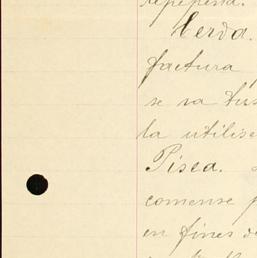 Cerda.
factura
se va
la utilise
Pisca.
comense p
en fines de